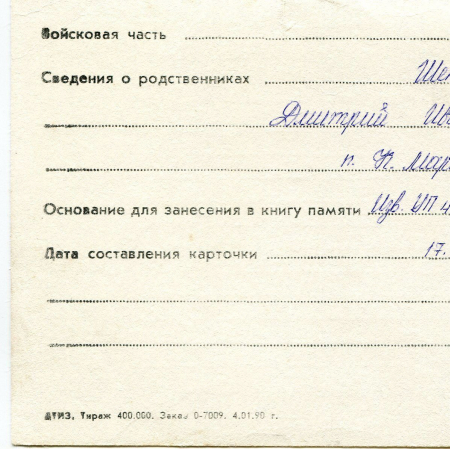 Войсковая часть
Сведения о родственниках Шев
Дмитрий Ива
п. К. Мар
Основание для занесения в книгу памяти Изв. ИП 4
Дата составления карточки 17.
ДТИЗ, Тираж 400.000. Заказ 0-7009. 4.01.90 г.